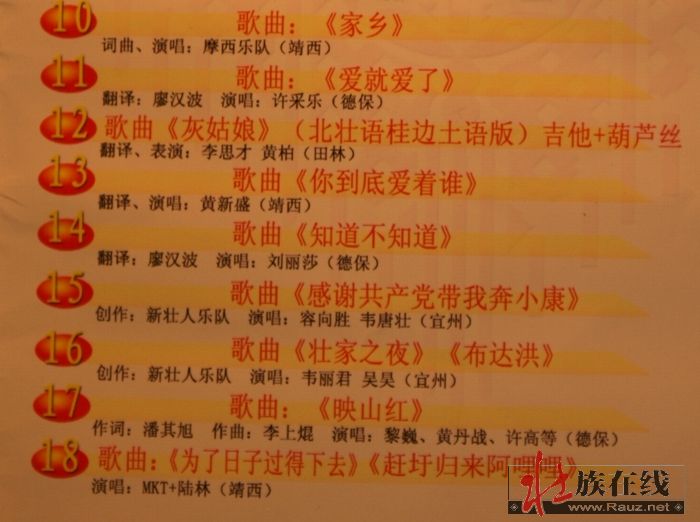 10 歌曲：《家乡》
词曲、演唱：摩西乐队（靖西）
11 歌曲：《爱就爱了》
翻译：廖汉波 演唱：许采乐（德保）
12 歌曲《灰姑娘》（北壮语桂边土语版）吉他+葫芦丝
翻译、表演：李思才 黄柏（田林）
13 歌曲《你到底爱着谁》
翻译、演唱：黄新盛（靖西）
14 歌曲《知道不知道》
翻译：廖汉波 演唱：刘丽莎（德保）
15 歌曲《感谢共产党带我奔小康》
创作：新壮人乐队 演唱：容向胜 韦唐壮（宜州）
16 歌曲《壮家之夜》《布达洪》
创作：新壮人乐队 演唱：韦丽君 吴昊（宜州）
17 歌曲：《映山红》
作词：潘其旭 作曲：李上焜 演唱：黎巍、黄丹战、许高等（德保）
18 歌曲：《为了日子过得下去》《赶圩归来阿哩哩》
演唱：MKT+陆林（靖西）
壮族在线
www.Rauz.net